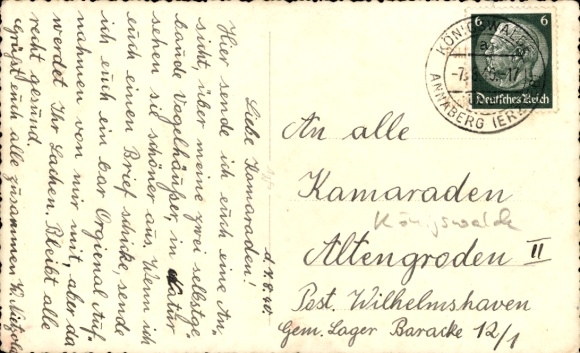 d. 7. 8. 40.
Liebe Kamaraden!
Hier sende ich euch eine An-
sicht, über meine zwei selbstge-
baude Vogelhäußer, in Natur
sehen sie schöner aus. Wenn ich
euch einen Brief schicke, sende
ich euch ein bar Orgienal Auf-
nahmen von mir mit, aber da
werdet Ihr Lachen. Bleibt alle
recht gesund.
Grüßt euch alle zusammen
An alle
Kamaraden
Königswalde
Altengroden II
Post. Wilhelmshaven
Gem. Lager Baracke 12/1
6 6
Deutsches Reich
KÖNIGSWALDE
ANNABERG (ERZ